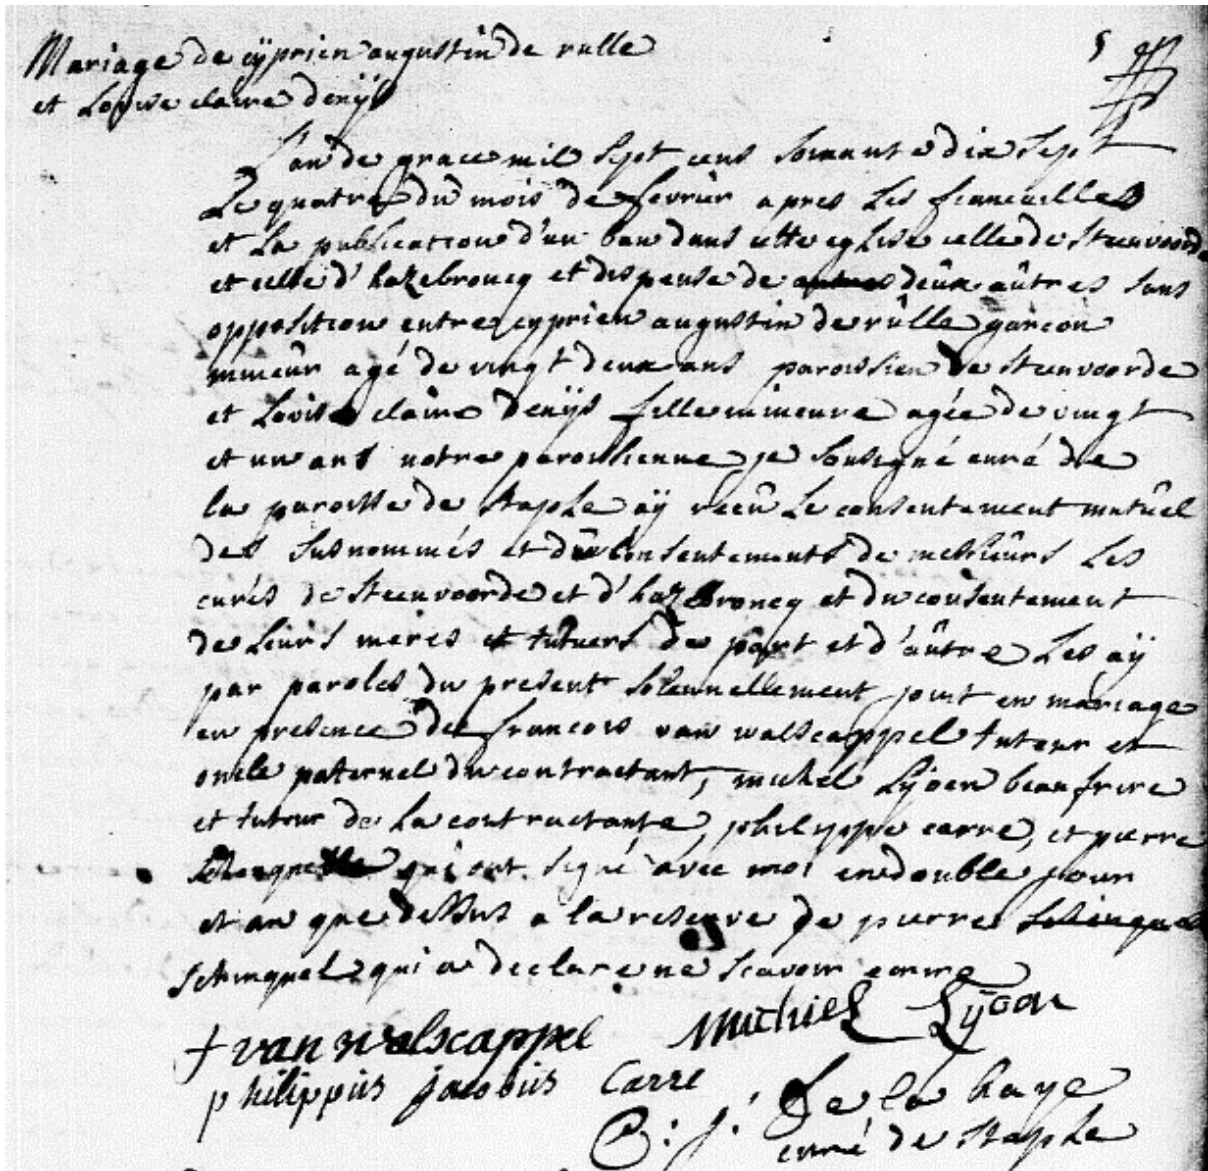 Mariage de cÿprien augustin de rulle
5
et Lovise claire denÿs
L'an de grace mil sept cens soixante dix sept
Le quatre du mois de fevrier apres les fiancailles
et la publication d'un ban dans cette eglise celle de Steenvoorde
et celle d'hazebroucq et dispense de deûx aûtres sans
opposition entre cyprien augustin de rûlle garcon
mineur agé de vingt deux ans paroissien de Steenvoorde
et Lovise claire denÿs fille mineure agée de vingt
et un ans notre paroissienne je soûsigné curé de
la paroisse de Staple aÿ recû le consentement mutûel
des susnommés et dû consentements de messieûrs les
curés de Steenvoorde et d'hazebroucq et du consentement
de leurs meres et tuteurs de part et d'aûtre les aÿ
par paroles du present solennellement joint en mariage
en presence de francois van walscappel tuteur et
oncle paternel du contractant, michel Lÿoen beaufrere
et tuteur de la contractante, philippe carre, et pierre
qui ont signé avec moi en double jour
et an que dessus a la reserve de pierre
schinquel qui a declare ne scavoir ecrire
f van walscappel Michiel Lÿoen
philippus jacobus Carre
J. De la haye
curé de Staple